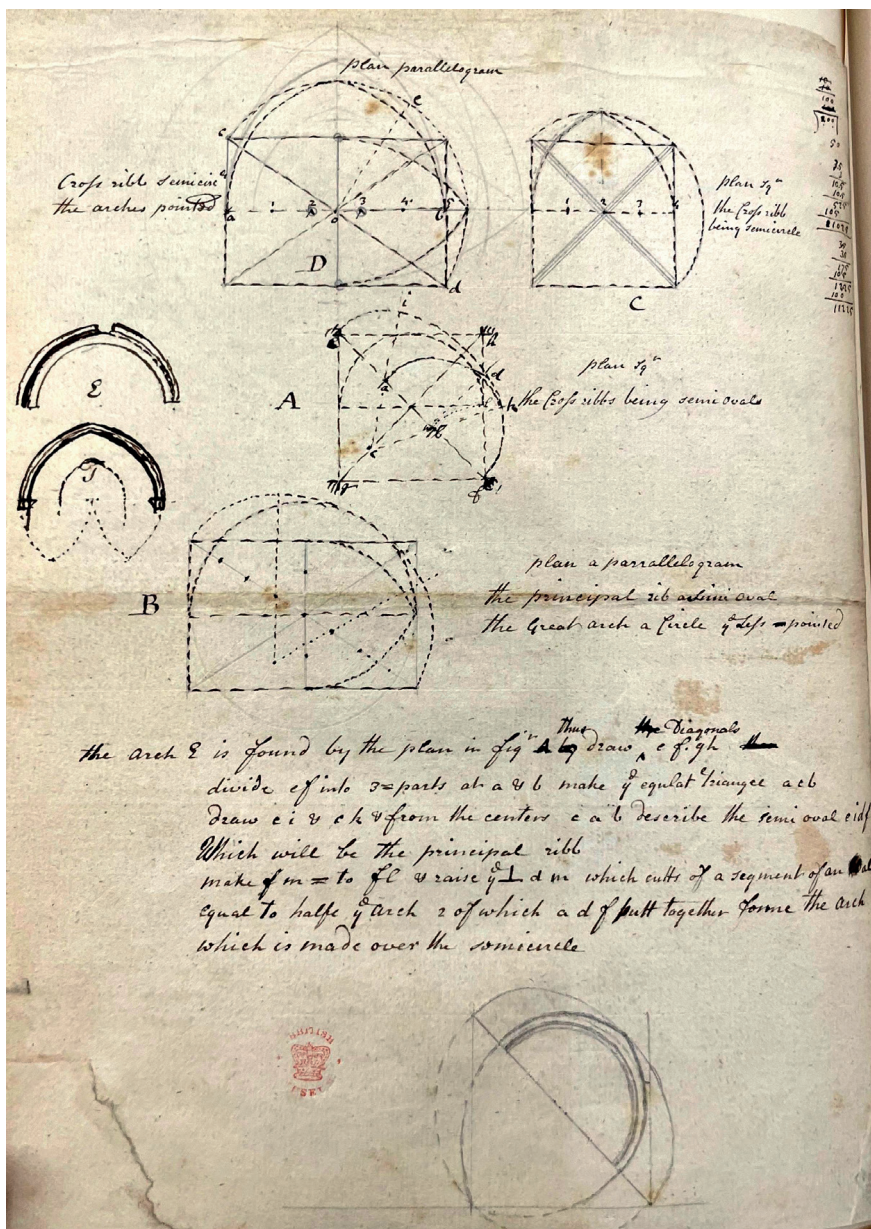 plan parallelogram
c
e
Cross ribb semicirc
the arches pointed
a
1
2
3
4
b
5
o
D
d
plan sqr
the Cross ribb
being semicircle
1
2
3
4
C
100
50
105
525
105
11025
175
105
1225
100
11225
E
i
A
a
d
h
c
plan sqr
the Cross ribs being semi ovals
B
plan a parrallelogram
the principal rib a semi oval
the Great arch a Circle ye Less = pointed
thus the Diagonals
the arch E is found by the plan in figr A by draw e f. gh the
divide ef into 3 = parts at a & b make ye equlat triangee acb
draw c i & c k & from the centers c a b describe the semi oval eidf
Which will be the principal ribb
make f m = to fl & raise ye ⊥ d m which cutts of a segment of an
equal to halfe ye arch 2 of which a d f putt together forme the arch
which is made over the semicircle
BRITISH
MUSEUM